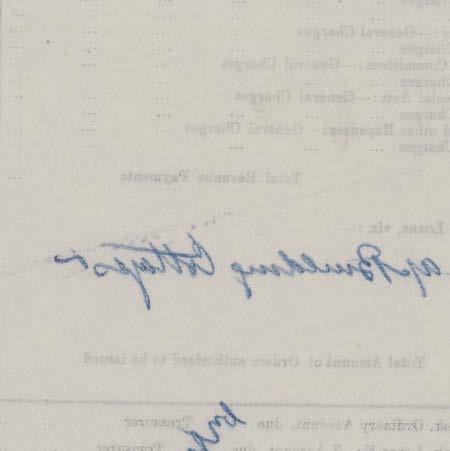 s:—General Charges
Charges
Committees:—General Charges
Charges
cial Acts:—General Charges
Charges
d other Expenses:—General Charges
Charges
Total Revenue Payments
Loans, viz.:—
Building Cottages
Total Amount of Orders authorised to be issued
Ordinary Account, due Treasurer
Account, due Treasurer